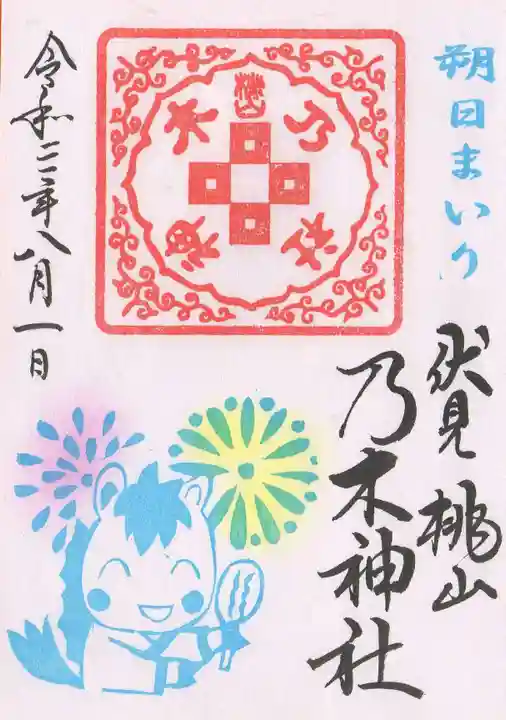 朔日まいり
伏見桃山
乃木神社
桃山
乃木
神社
令和二年八月一日